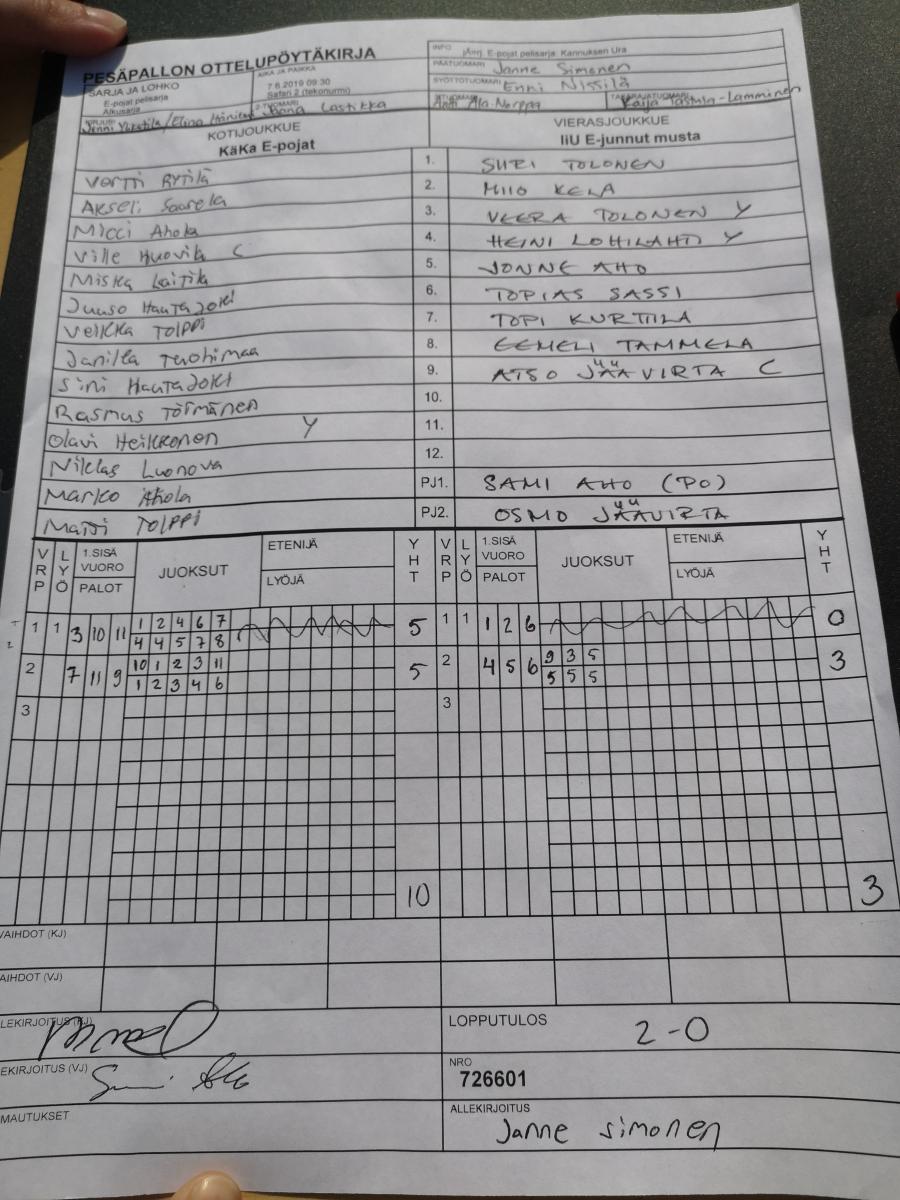 PESÄPALLON OTTELUPÖYTÄKIRJA
SARJA JA LOHKO
E-pojat pelisarja
Alkusarja
AIKA JA PAIKKA
7.6.2019 09:30
Safari 2 (tekonurmi)
INFO
E-pojat pelisarja: Kannuksen Ura
PÄÄTUOMARI Janne Simonen
SYÖTTÖTUOMARI Enni Nissilä
2-TUOMARI Lasikka
TAKARAJATUOMARI
Ala-Norppa
KOTIJOUKKUE
KäKa E-pojat
VIERASJOUKKUE
IiU E-junnut musta
Vertti Rytilä 1. SURI TOLONEN
Akseli Saarela 2. MIIO KELA
Micci Ahola 3. VEERA TOLONEN Y
Ville Huovila C 4. HEINI LOHILAHTI Y
Miska Laitila 5. JONNE AHO
Juuso Hautajoki 6. TOPIAS SASSI
Veikka TOLPPI 7. TOPI KURTTILA
Janika Tuohimaa 8. EEMELI TAMMELA
Sini Hautajoki 9. ATSO JÄÄVIRTA C
Rasmus TÖRMÄNEN 10.
Olavi Heikkonen Y 11.
Niklas Luonova 12.
Marko Ahola PJ1. SAMI AHO (PO)
Matti TOLPPI PJ2. OSMO JÄÄVIRTA
VRP LYÖ 1.SISÄ VUORO PALOT JUOKSUT ETENIJÄ LYÖJÄ YHT VRP LYÖ 1.SISÄ VUORO PALOT JUOKSUT ETENIJÄ LYÖJÄ YHT
1 1 3 10 11 1 2 4 6 7 5 1 1 1 2 6 0
4 4 5 7 8
2 7 11 9 10 1 2 3 11 5 2 4 5 6 9 3 5 3
1 2 3 4 6 5 5 5
3 3
10 3
VAIHDOT (KJ)
AIHDOT (VJ)
LEKIRJOITUS (KJ)
LOPPUTULOS 2-0
EKIRJOITUS (VJ)
NRO
726601
MAUTUKSET
ALLEKIRJOITUS
Janne Simonen